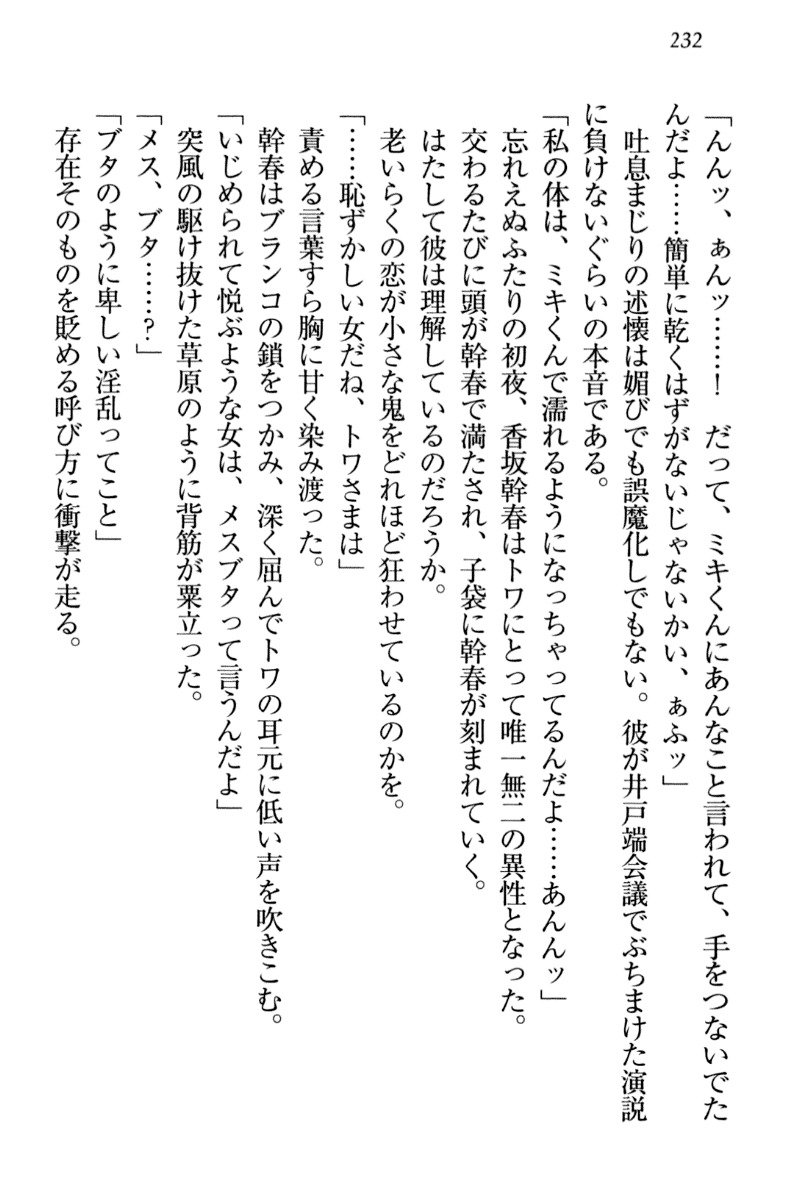 232
「んんッ、ぁんッ……！　だって、ミキくんにあんなこと言われて、手をつないでた
んだよ……簡単に乾くはずがないじゃないかい、ぁふッ」
吐息まじりの述懐は媚びでも誤魔化しでもない。彼が井戸端会議でぶちまけた演説
に負けないぐらいの本音である。
「私の体は、ミキくんで濡れるようになっちゃってるんだよ……あんんッ」
忘れえぬふたりの初夜、香坂幹春はトワにとって唯一無二の異性となった。
交わるたびに頭が幹春で満たされ、子袋に幹春が刻まれていく。
はたして彼は理解しているのだろうか。
老いらくの恋が小さな鬼をどれほど狂わせているのかを。
「……恥ずかしい女だね、トワさまは」
責める言葉すら胸に甘く染み渡った。
幹春はブランコの鎖をつかみ、深く屈んでトワの耳元に低い声を吹きこむ。
「いじめられて悦ぶような女は、メスブタって言うんだよ」
突風の駆け抜けた草原のように背筋が粟立った。
「メス、ブタ……？」
「ブタのように卑しい淫乱ってこと」
存在そのものを貶める呼び方に衝撃が走る。